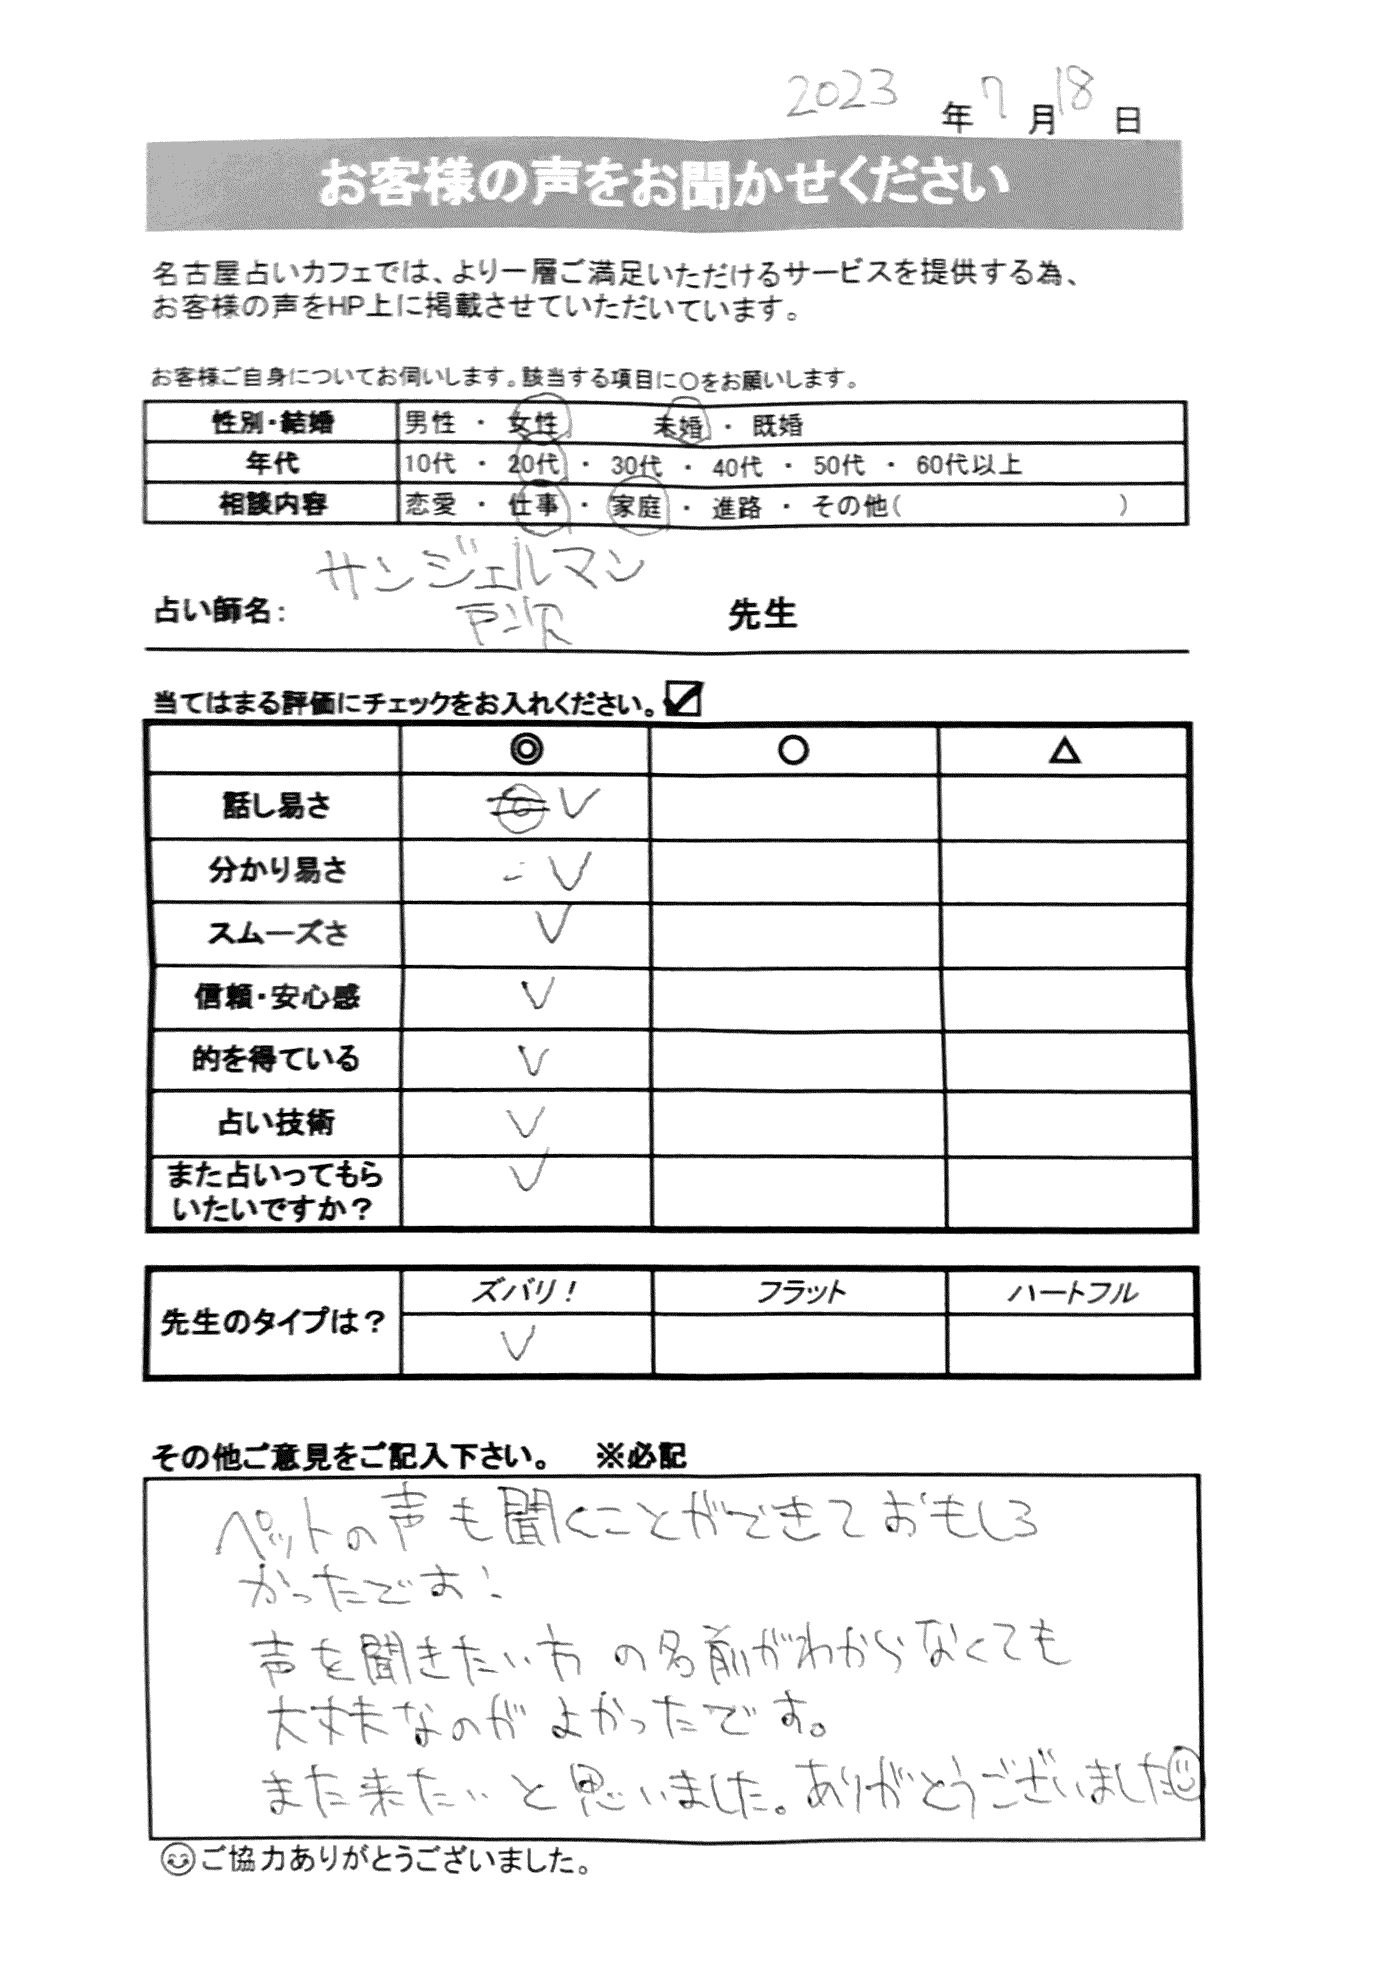 2023 年 7 月 18 日
お客様の声をお聞かせください
名古屋占いカフェでは、より一層ご満足いただけるサービスを提供する為、
お客様の声をHP上に掲載させていただいています。
お客様ご自身についてお伺いします。該当する項目に〇をお願いします。
性別・結婚 男性 ・ 女性 未婚 ・ 既婚
年代 10代 ・ 20代 ・ 30代 ・ 40代 ・ 50代 ・ 60代以上
相談内容 恋愛 ・ 仕事 ・ 家庭 ・ 進路 ・ その他( )
サンジェルマン
占い師名: 先生
当てはまる評価にチェックをお入れください。☑
◎ ○ △
話し易さ ✓
分かり易さ ✓
スムーズさ ✓
信頼・安心感 ✓
的を得ている ✓
占い技術 ✓
また占いってもら
いたいですか? ✓
ズバリ! フラット ハートフル
先生のタイプは? ✓
その他ご意見をご記入下さい。 ※必記
ペットの声も聞くことができておもしろ
かったです
声を聞きたい方の名前がわからなくても
大丈夫なのがよかったです。
また来たいと思いました。ありがとうございました☺
☺ご協力ありがとうございました。